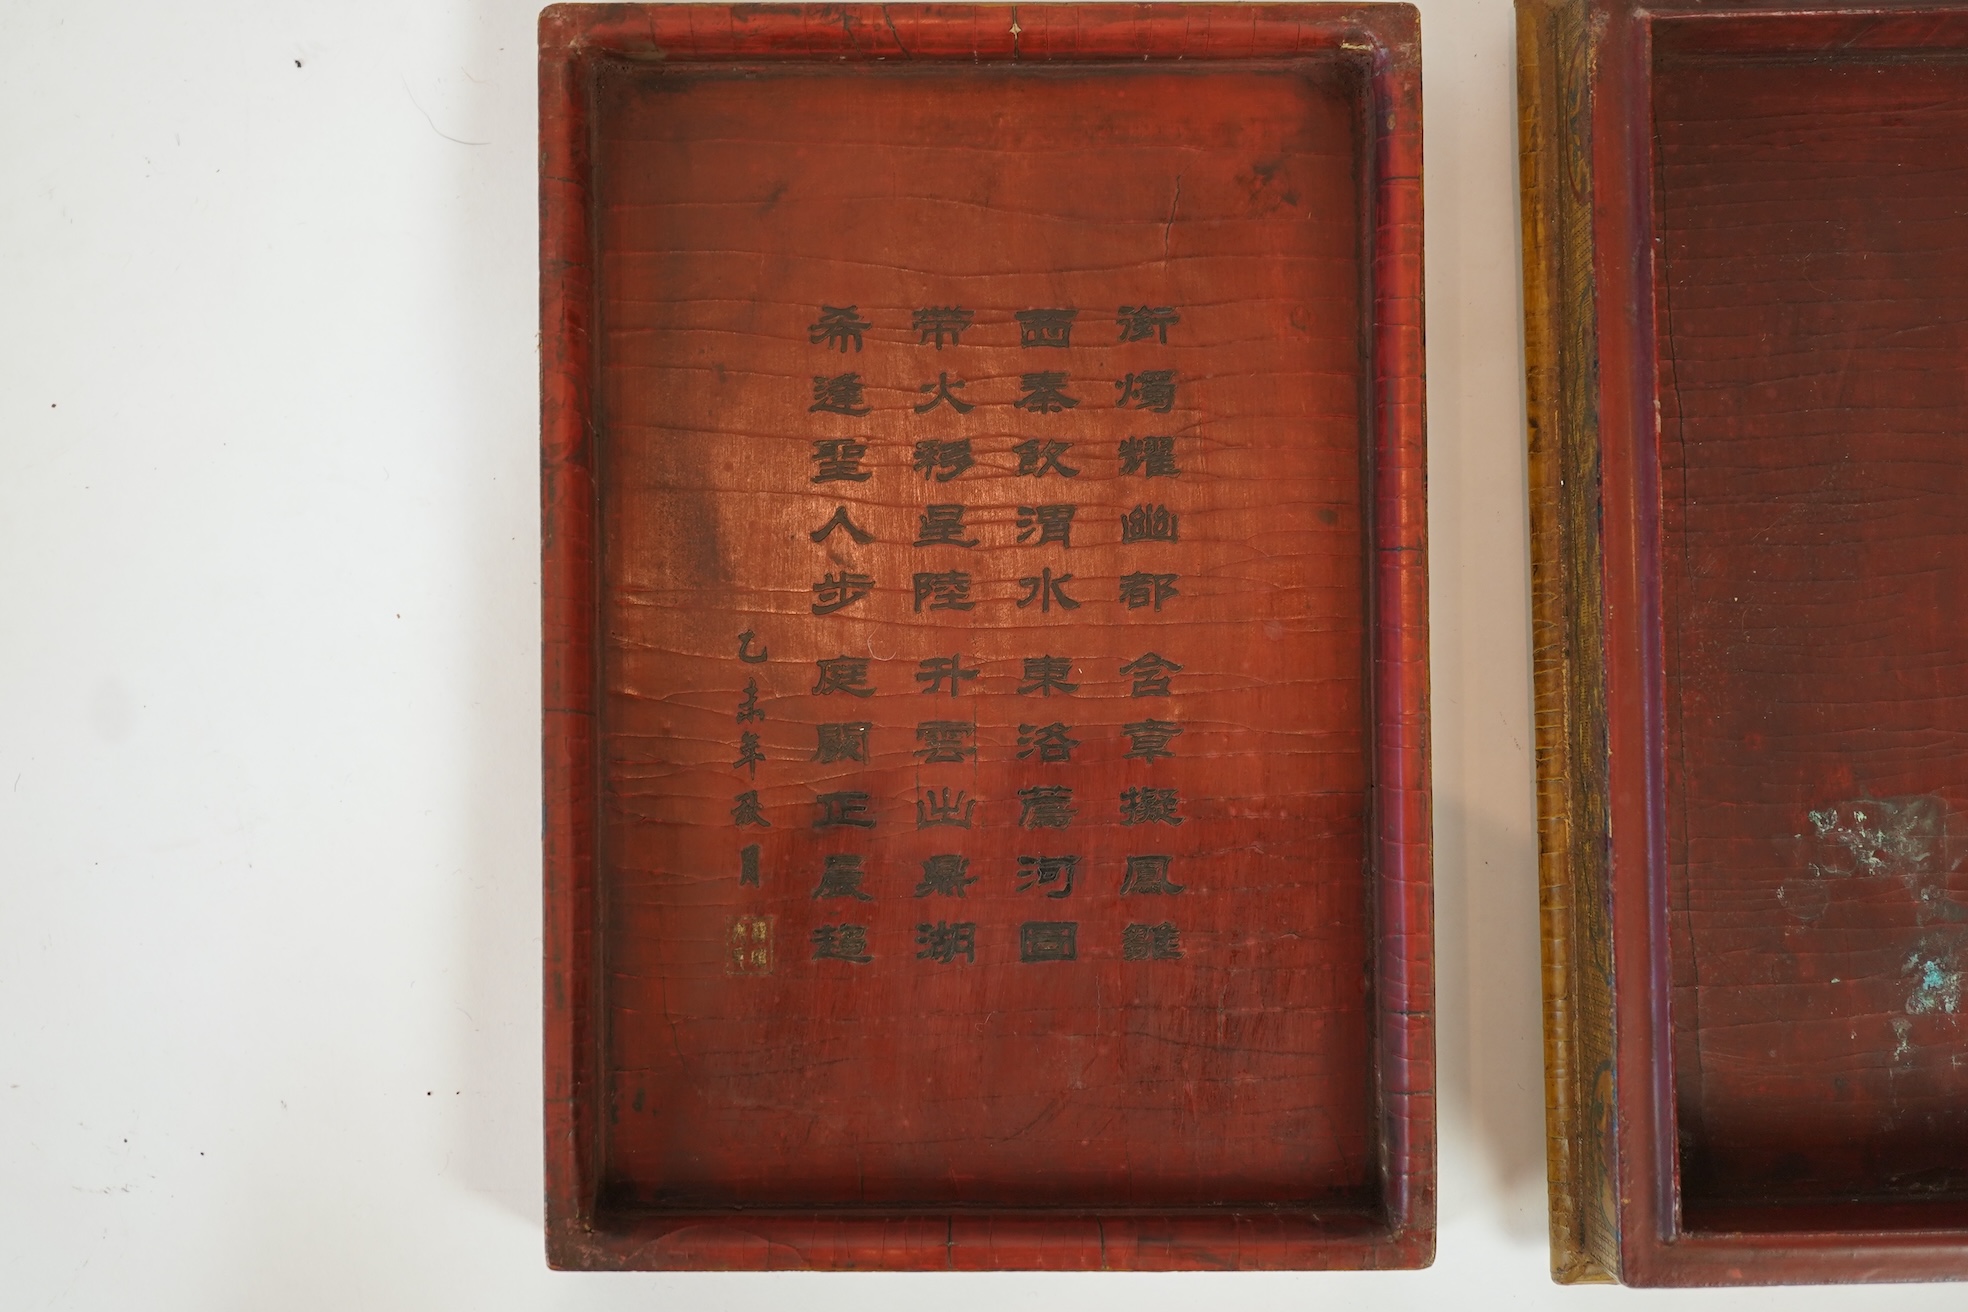 銜燭耀幽都 含章擬鳳雛
西秦飲渭水 東洛薦河圖
帶火移星陸 升雲出鼎湖
希逢聖人步 庭闕正晨趨
乙未年月